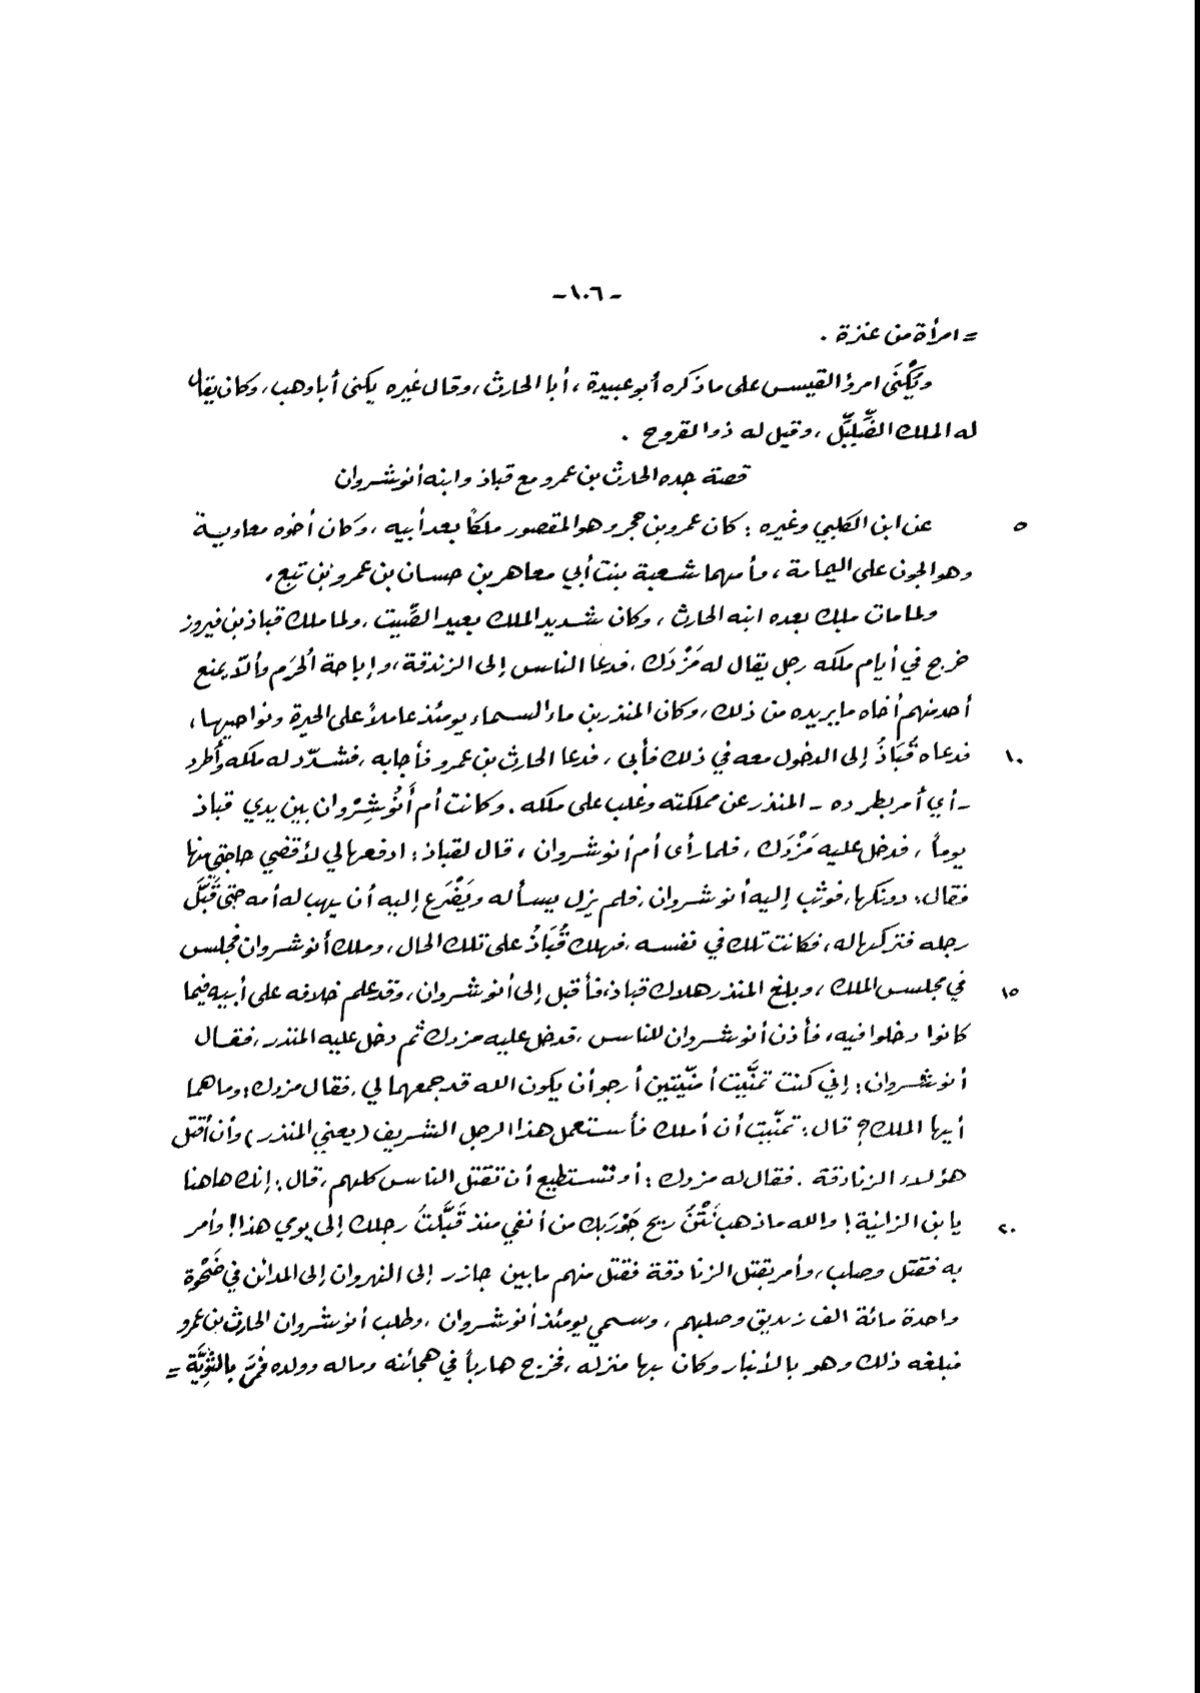 - ١٠٦ -
= امرأة من عنزة .
ويُكْنَى امرؤ القيس على ما ذكره أبو عبيدة ، أبا الحارث ، وقال غيره يكنى أبا وهب ، وكان يقال
له الملك الضِّلِّيل ، وقيل له ذو القروح .
قصة جده الحارث بن عمرو مع قباذ وابنه أنوشروان
٥ عن ابن الكلبي وغيره : كان عمرو بن حجر وهو المقصور ملكاً بعد أبيه ، وكان أخوه معاوية
وهو الجون على اليمامة ، وأمهما شعبة بنت أبي معاهر بن حسان بن عمرو بن تبع ،
ولما مات ملك بعده ابنه الحارث ، وكان شديد الملك بعيد الصِّيت ، ولما ملك قباذ بن فيروز
خرج في أيام ملكه رجل يقال له مَزْدَك ، فدعا الناس إلى الزندقة ، وإباحة الحُرَم وألّا يمنع
أحد منهم أخاه ما يريده من ذلك ، وكان المنذر بن ماء السماء يومئذ عاملاً على الحيرة ونواحيها ،
١٠ فدعاه قُبَاذُ إلى الدخول معه في ذلك فأبى ، فدعا الحارث بن عمرو فأجابه ، فشدّد له ملكه وأطرد
- أي أمر بطرده - المنذر عن مملكته وغلب على ملكه . وكانت أم أَنُوْشِرْوان بين يدي قباذ
يوماً ، فدخل عليه مَزْدَك ، فلما رأى أم أنوشروان ، قال لقباذ : ادفعها لي لأقضي حاجتي منها
فقال : دونكها ، فوثب إليه أنوشروان ، فلم يزل يسأله ويَضْرَع إليه أن يهب له أمه حتى قَبَّلَ
رجله فتركها له ، فكانت تلك في نفسه ، فهلك قُبَاذُ على تلك الحال ، وملك أنوشروان فجلس
١٥ في مجلس الملك ، وبلغ المنذر هلاك قباذ ، فأقبل إلى أنوشروان ، وقد علم خلافه على أبيه فيما
كانوا دخلوا فيه ، فأذن أنوشروان للناس ، فدخل عليه مزدك ثم دخل عليه المنذر ، فقال
أنوشروان : إني كنت تمنَّيت أمنيّتين أرجو أن يكون الله قد جمعهما لي ، فقال مزدك : وما هما
أيها الملك ؟ قال : تمنّيت أن أملك فأستعمل هذا الرجل الشريف (يعني المنذر) وأن أقتل
هؤلاء الزنادقة . فقال له مزدك : أو تستطيع أن تقتل الناس كلهم ، قال : إنك هاهنا
٢٠ يا بن الزانية ! والله ما ذهب نَتْنُ ريح جَوْرَبك من أنفي منذ قَبَّلتُ رجلك إلى يومي هذا ! وأمر
به فقتل وصلب ، وأمر بقتل الزنادقة فقتل منهم ما بين جازر إلى النهروان إلى المدائن في ضَحْوة
واحدة مائة الف زنديق وصلبهم ، وسمي يومئذ أنوشروان ، وطلب أنوشروان الحارث بن عمرو
فبلغه ذلك وهو بالأنبار وكان بها منزله ، فخرج هارباً في هجائنه وماله وولده فمرَّ بالثَّوِيَّة =